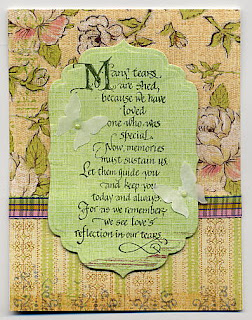 Many tears
are shed,
because we have
loved
one who was
special.
Now, memories
must sustain us.
Let them guide you
and keep you
today and always.
For as we remember,
we see love's
reflection in our tears.